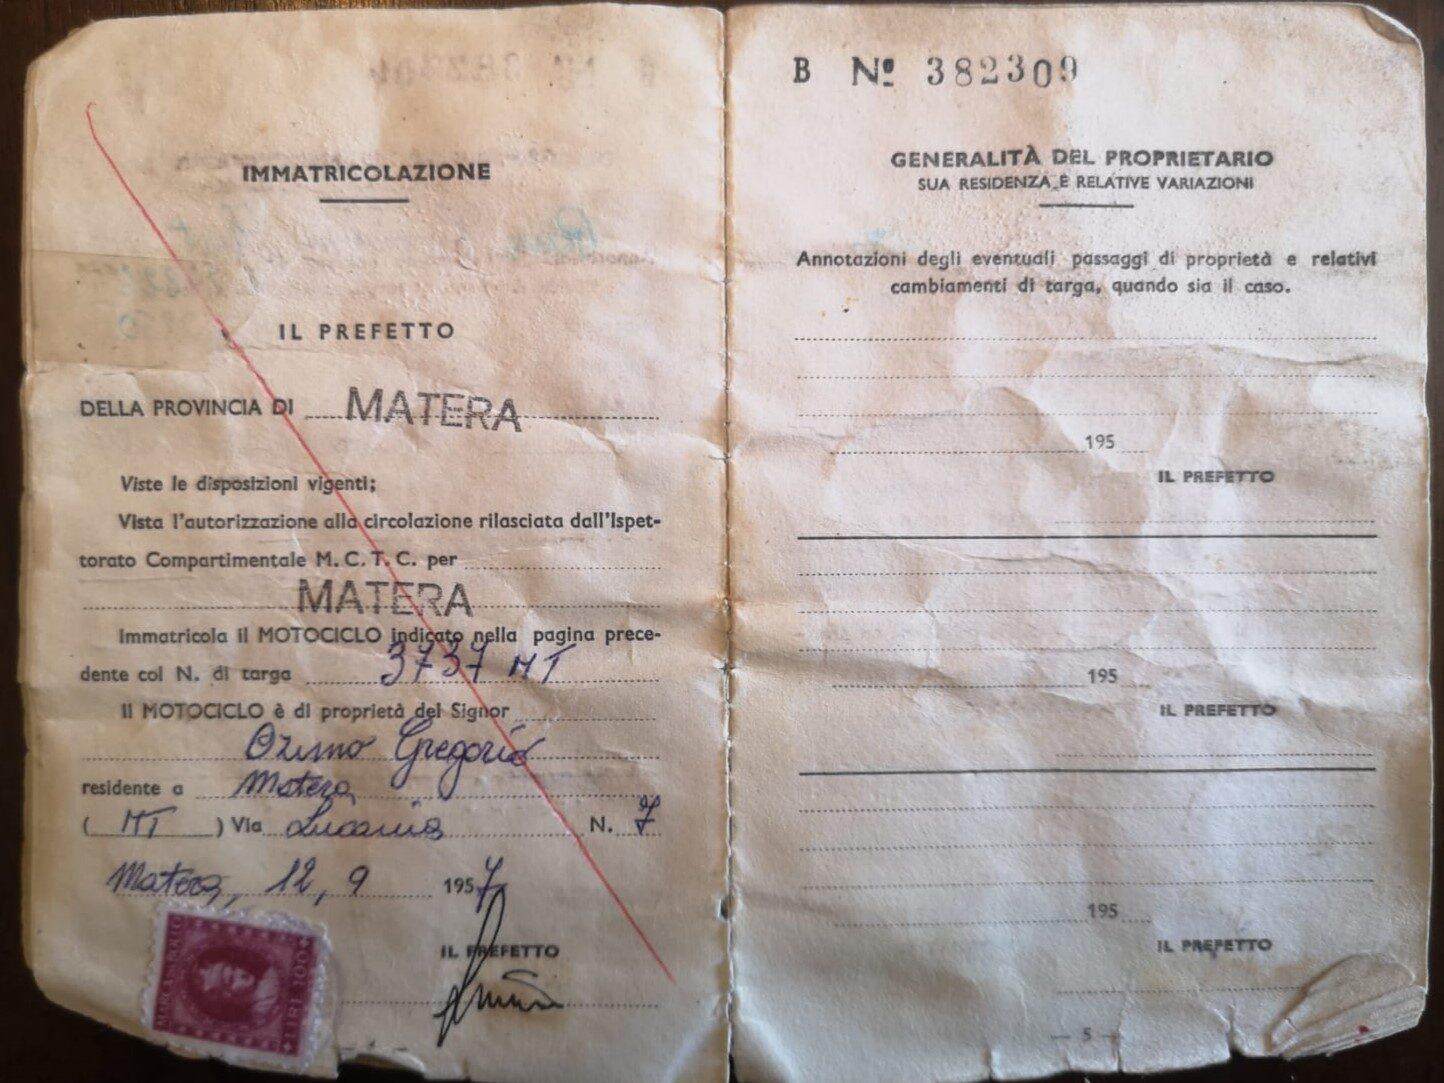 IMMATRICOLAZIONE
IL PREFETTO
DELLA PROVINCIA DI MATERA
Viste le disposizioni vigenti;
Vista l'autorizzazione alla circolazione rilasciata dall'Ispet-
torato Compartimentale M. C. T. C. per
MATERA
Immatricola il MOTOCICLO indicato nella pagina prece-
dente col N. di targa 3737 MT
Il MOTOCICLO è di proprietà del Signor
Ozimo Gregorio
residente a Matera
( MT ) Via Lucania N. 7
Matera, 12, 9 1957
IL PREFETTO
MARCA DA BOLLO
LIRE 100
B Nº 382309
GENERALITÀ DEL PROPRIETARIO
SUA RESIDENZA E RELATIVE VARIAZIONI
Annotazioni degli eventuali passaggi di proprietà e relativi
cambiamenti di targa, quando sia il caso.
195
IL PREFETTO
195
IL PREFETTO
195
IL PREFETTO
— 5 —